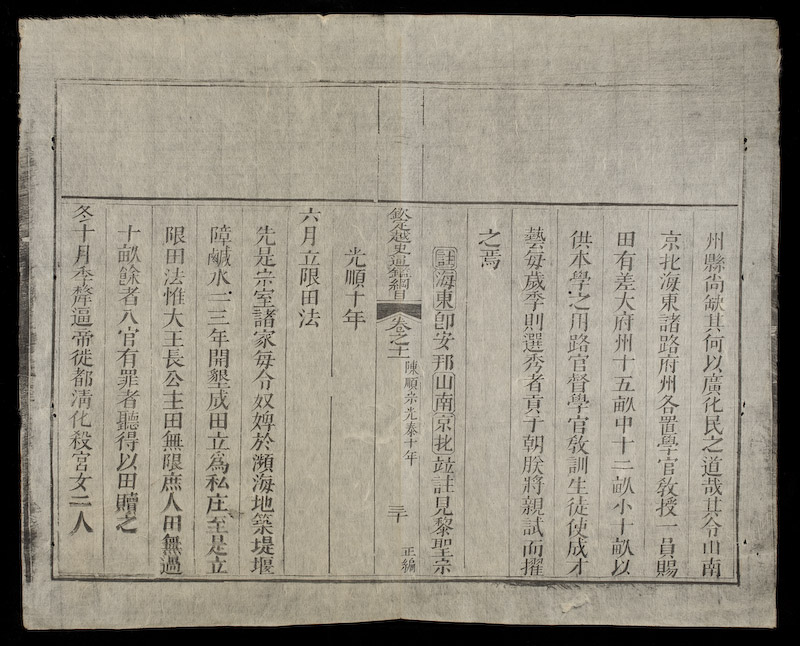 州縣尚缺其何以廣化民之道哉其令山南
京北海東諸路府州各置學官教授一員賜
田有差大府州十五畝中十二畝小十畝以
供本學之用路官督學官教訓生徒使成才
藝每歲季則選秀者貢于朝朕將親試而擢
之焉
註海東卽安邦山南京北竝註見黎聖宗
光順十年
欽定越史通鑑綱目 卷之十一 陳順宗光泰十年 三十 正編
六月立限田法
先是宗室諸家每令奴婢於瀕海地築堤堰
障鹹水二三年開墾成田立爲私庄至是立
限田法惟大王長公主田無限庶人田無過
十畝餘者入官有罪者聽得以田贖之
冬十月季犛逼帝徙都淸化殺宮女二人